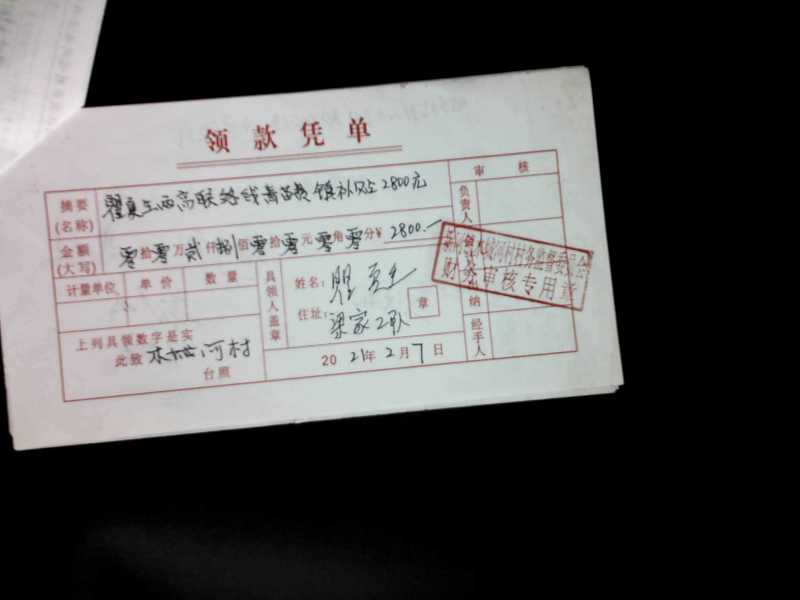 领款凭单
摘要(名称) 瞿夏生西高联络线青苗费镇补贴2800元
审核
负责人
金额(大写) 零拾零万贰仟捌佰零拾零元零角零分¥2800.—
计量单位 单价 数量
具领人盖章
姓名: 瞿夏生
住址: 梁家二队
章
河村村务监督委员会
财务审核专用章
纳
经手人
上列具领数字是实
此致 木坡河村
台照
2021年2月7日